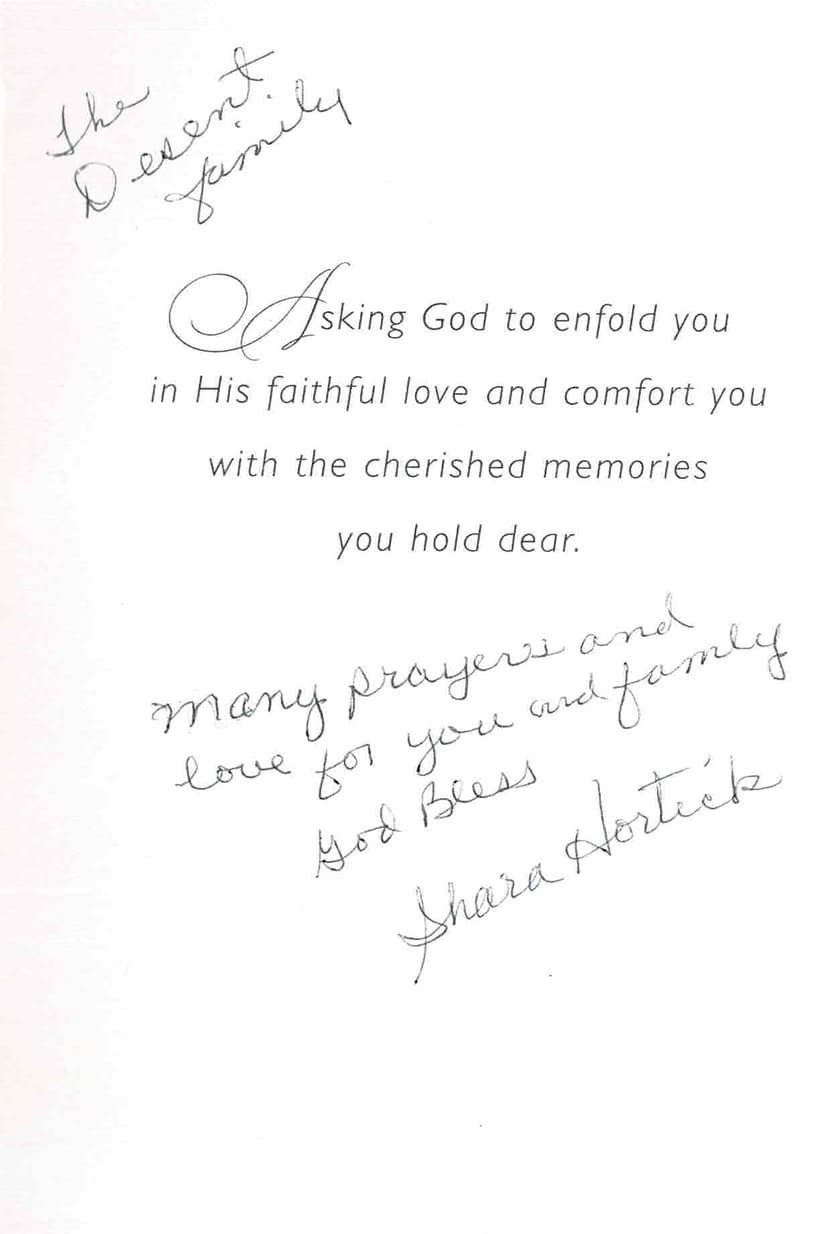 The
Desent
family
Asking God to enfold you
in His faithful love and comfort you
with the cherished memories
you hold dear.
many prayers and
love for you and family
God Bless
Shara Hortick